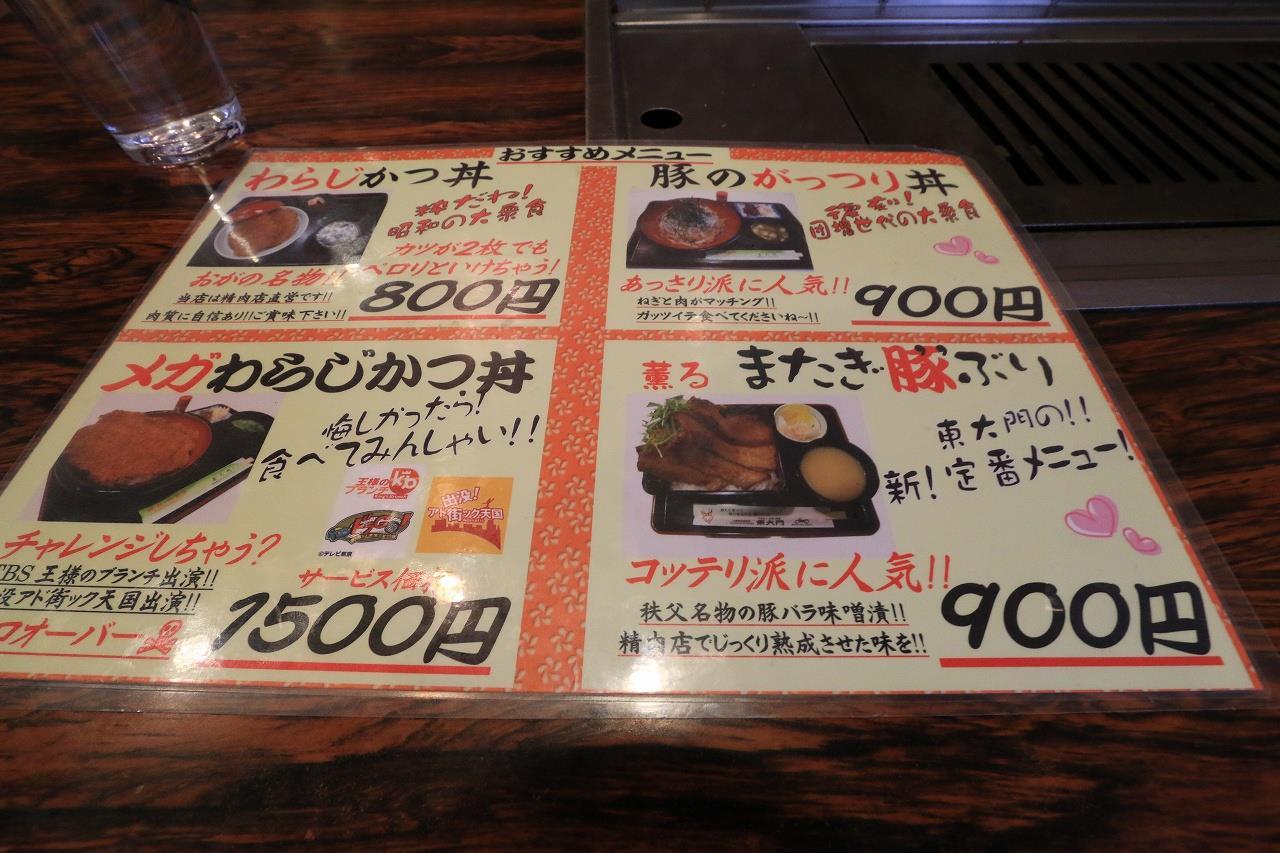 おすすめメニュー
わらじかつ丼
粋だね!
昭和の大衆食
カツが2枚でも
ペロリといけちゃう!
おがの名物!!
当店は精肉店直営です!!
肉質に自信あり!!ご賞味下さい!!
800円
豚のがっつり丼
団塊世代の大衆食
あっさり派に人気!!
ねぎと肉がマッチング!!
ガッツイテ食べてくださいね〜!!
900円
メガわらじかつ丼
悔しかったら!
食べてみんしゃい!!
王様の
ブランチ
出没!
アド街ック天国
©テレビ東京
チャレンジしちゃう?
TBS 王様のブランチ出演!!
没アド街ック天国出演!!
サービス価
オーバー
1500円
薫る またぎ豚ぶり
東大門の!!
新!定番メニュー!
東大門
コッテリ派に人気!!
秩父名物の豚バラ味噌漬!!
精肉店でじっくり熟成させた味を!!
900円